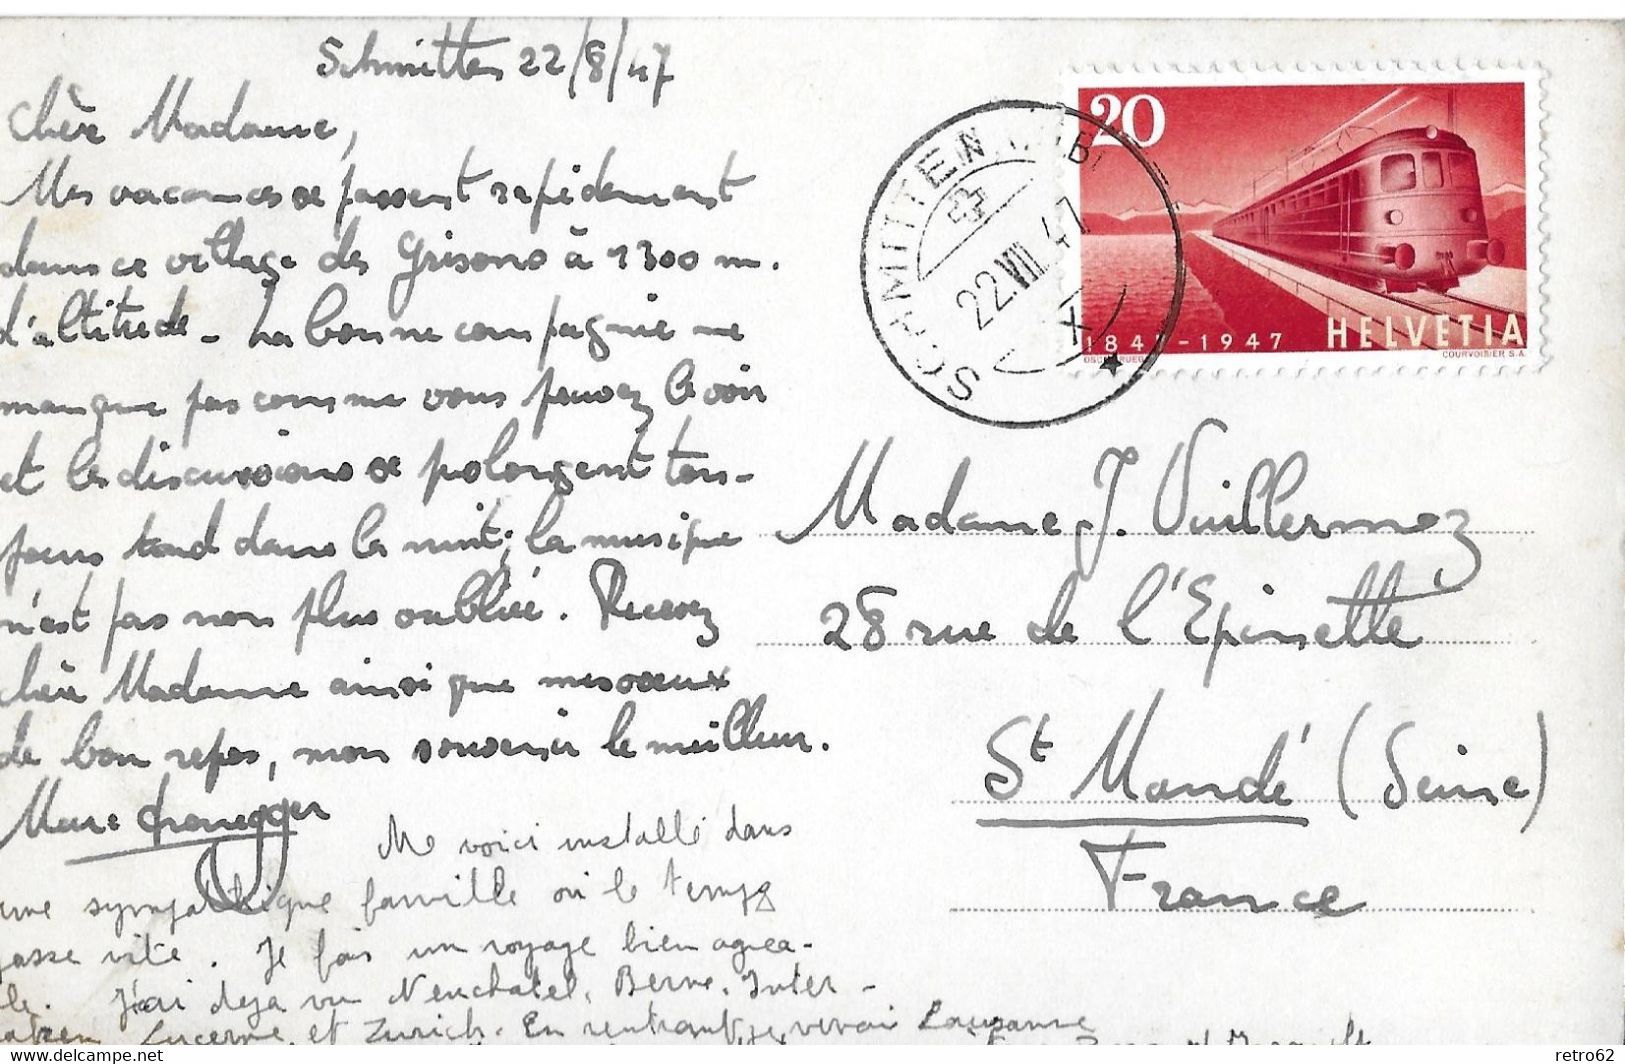 Schmitten 22/8/47
Chère Madame,
Mes vacances se passent rapidement
dans ce village des Grisons à 1300 m.
d'altitude - La bonne compagnie ne
manque pas comme vous pouvez le voir
et les discussions se polongent tou-
jours tard dans la nuit; la musique
n'est pas non plus oubliée. Recevez
chère Madame ainsi que mes vœux
de bon repos, mon souvenir le meilleur.
Marc Honegger
Me voici installé dans
une sympathique famille où le temps
passe vite. Je fais un voyage bien agréa-
ble. J'ai deja vu Neuchatel, Berne, Inter-
laken Lucerne, et Zurich. En rentrant, je verrai Lausanne
20
1847-1947
HELVETIA
COURVOISIER S.A.
SCHMITTEN
22.VIII.47
X
Madame J. Vuillermoz
28 rue de l'Epinette
St Mandé (Seine)
France
retro62